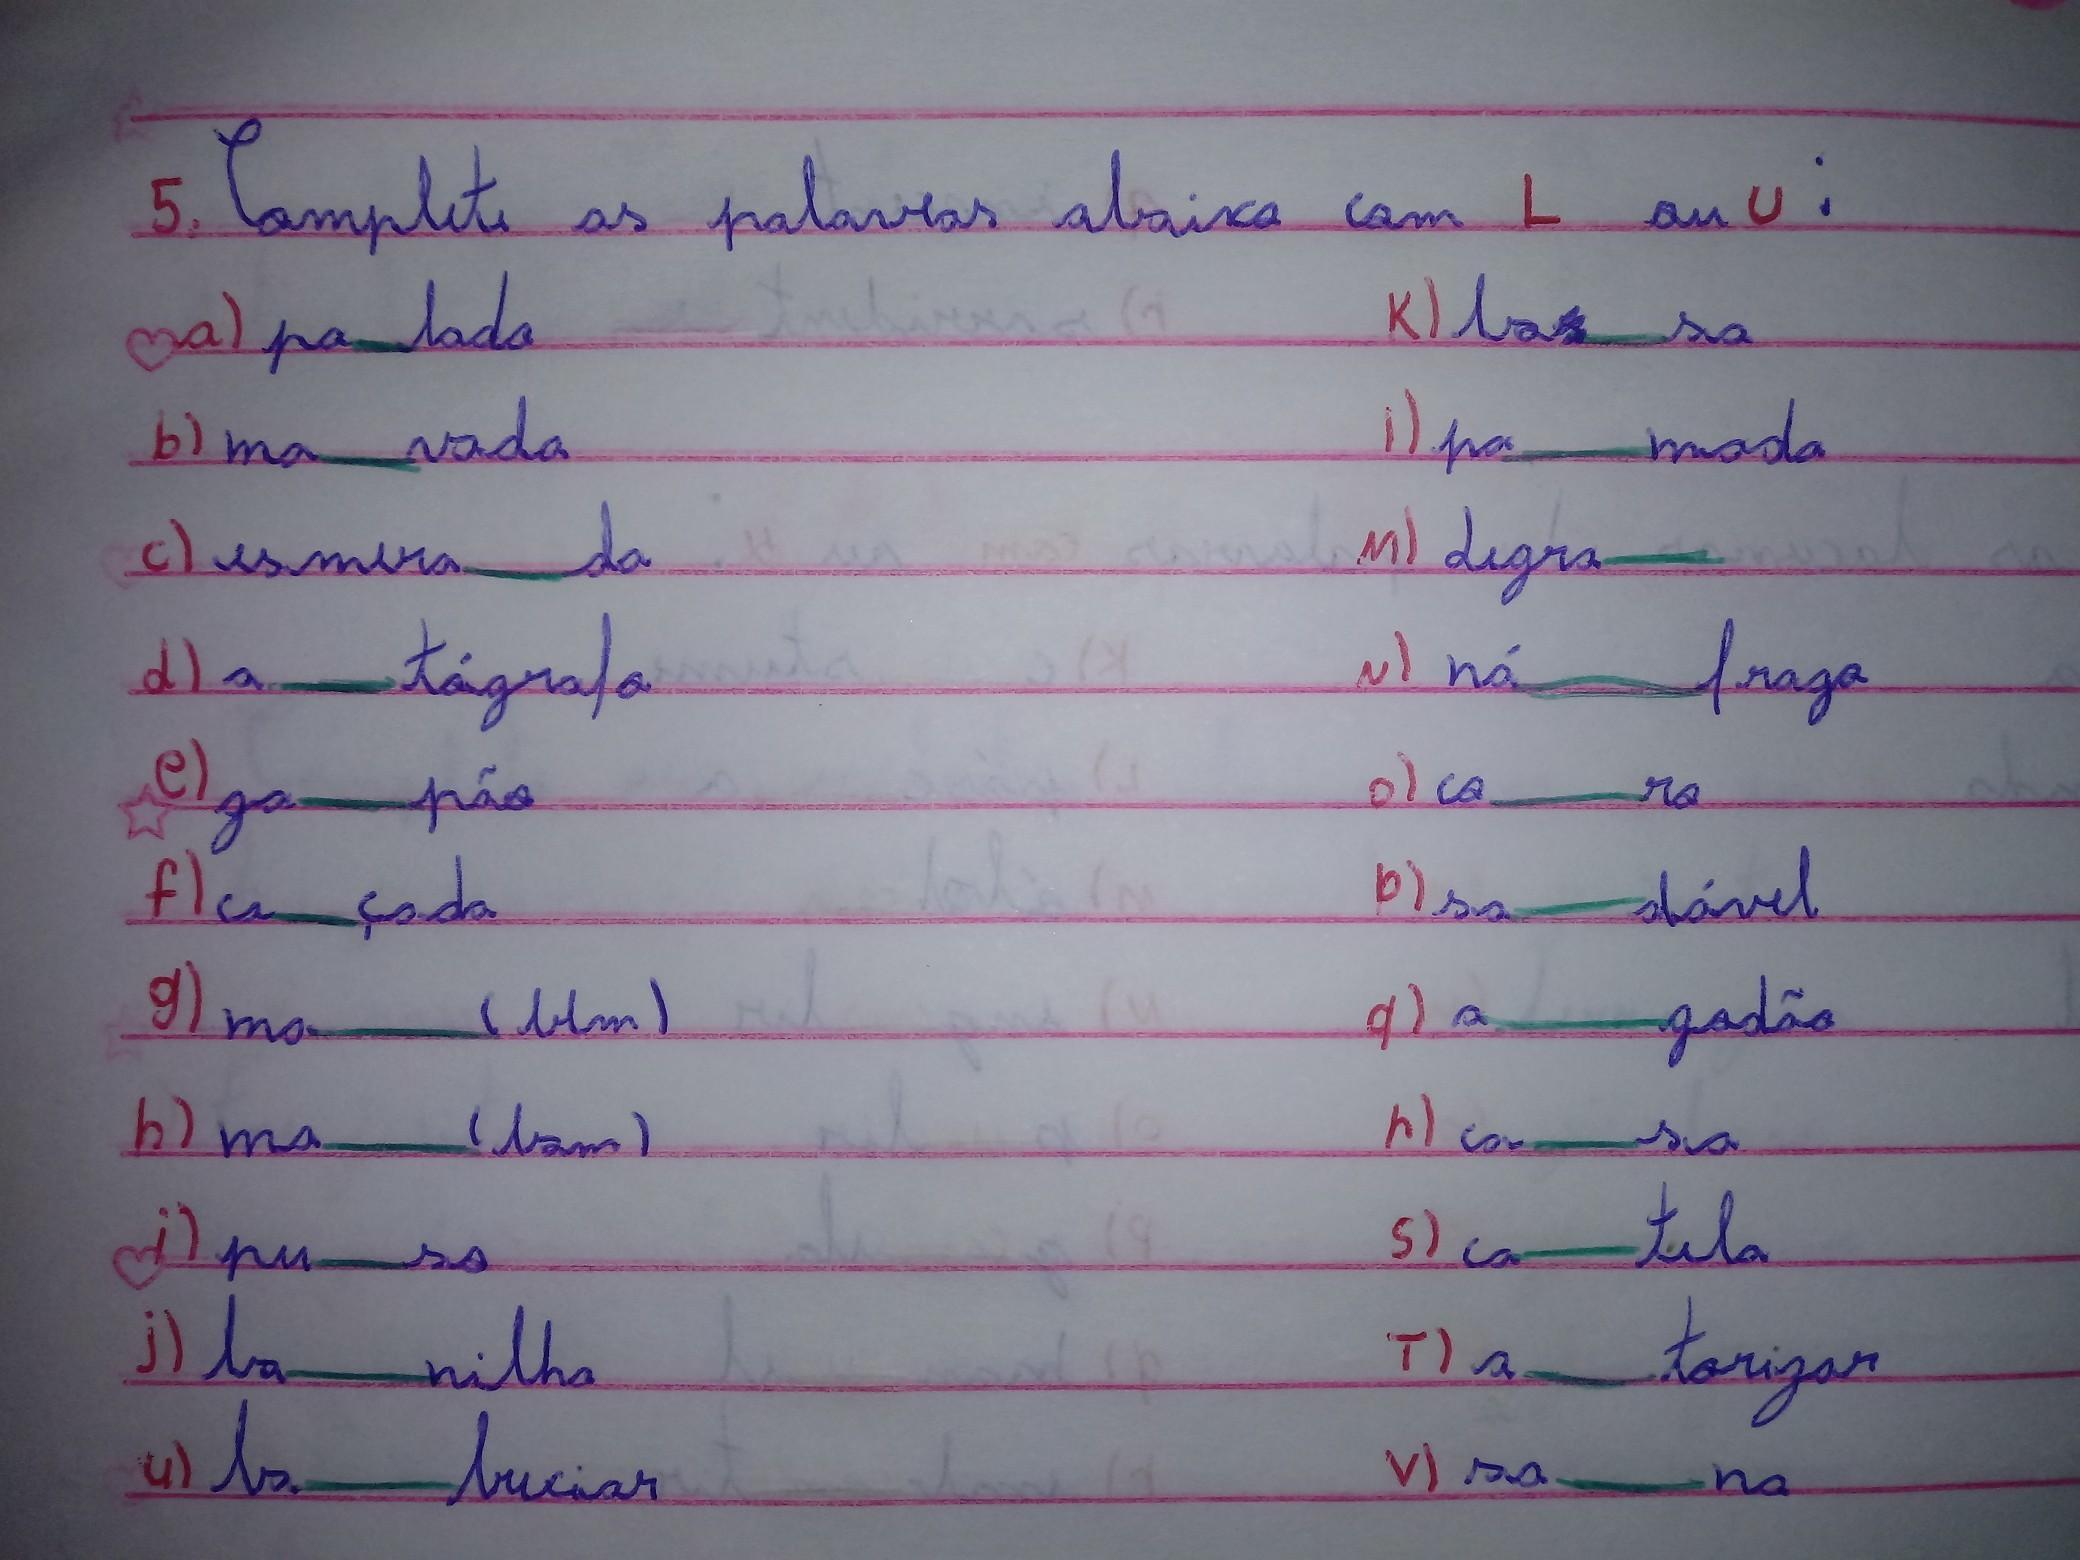 5. Complete as palavras abaixo com L ou U:
a) pa__lada
b) ma__vada
c) esmera__da
d) a__tógrafo
e) ga__pão
f) ca__çada
g) ma__(bem)
h) ma__(bom)
i) pu__so
j) ba__nilha
u) ba__buciar
K) ba__sa
l) pa__mada
M) degra__
N) ná__frago
o) ca__ro
p) sa__dável
q) a__godão
r) ca__sa
S) ca__tela
T) a__torizar
V) sa__na